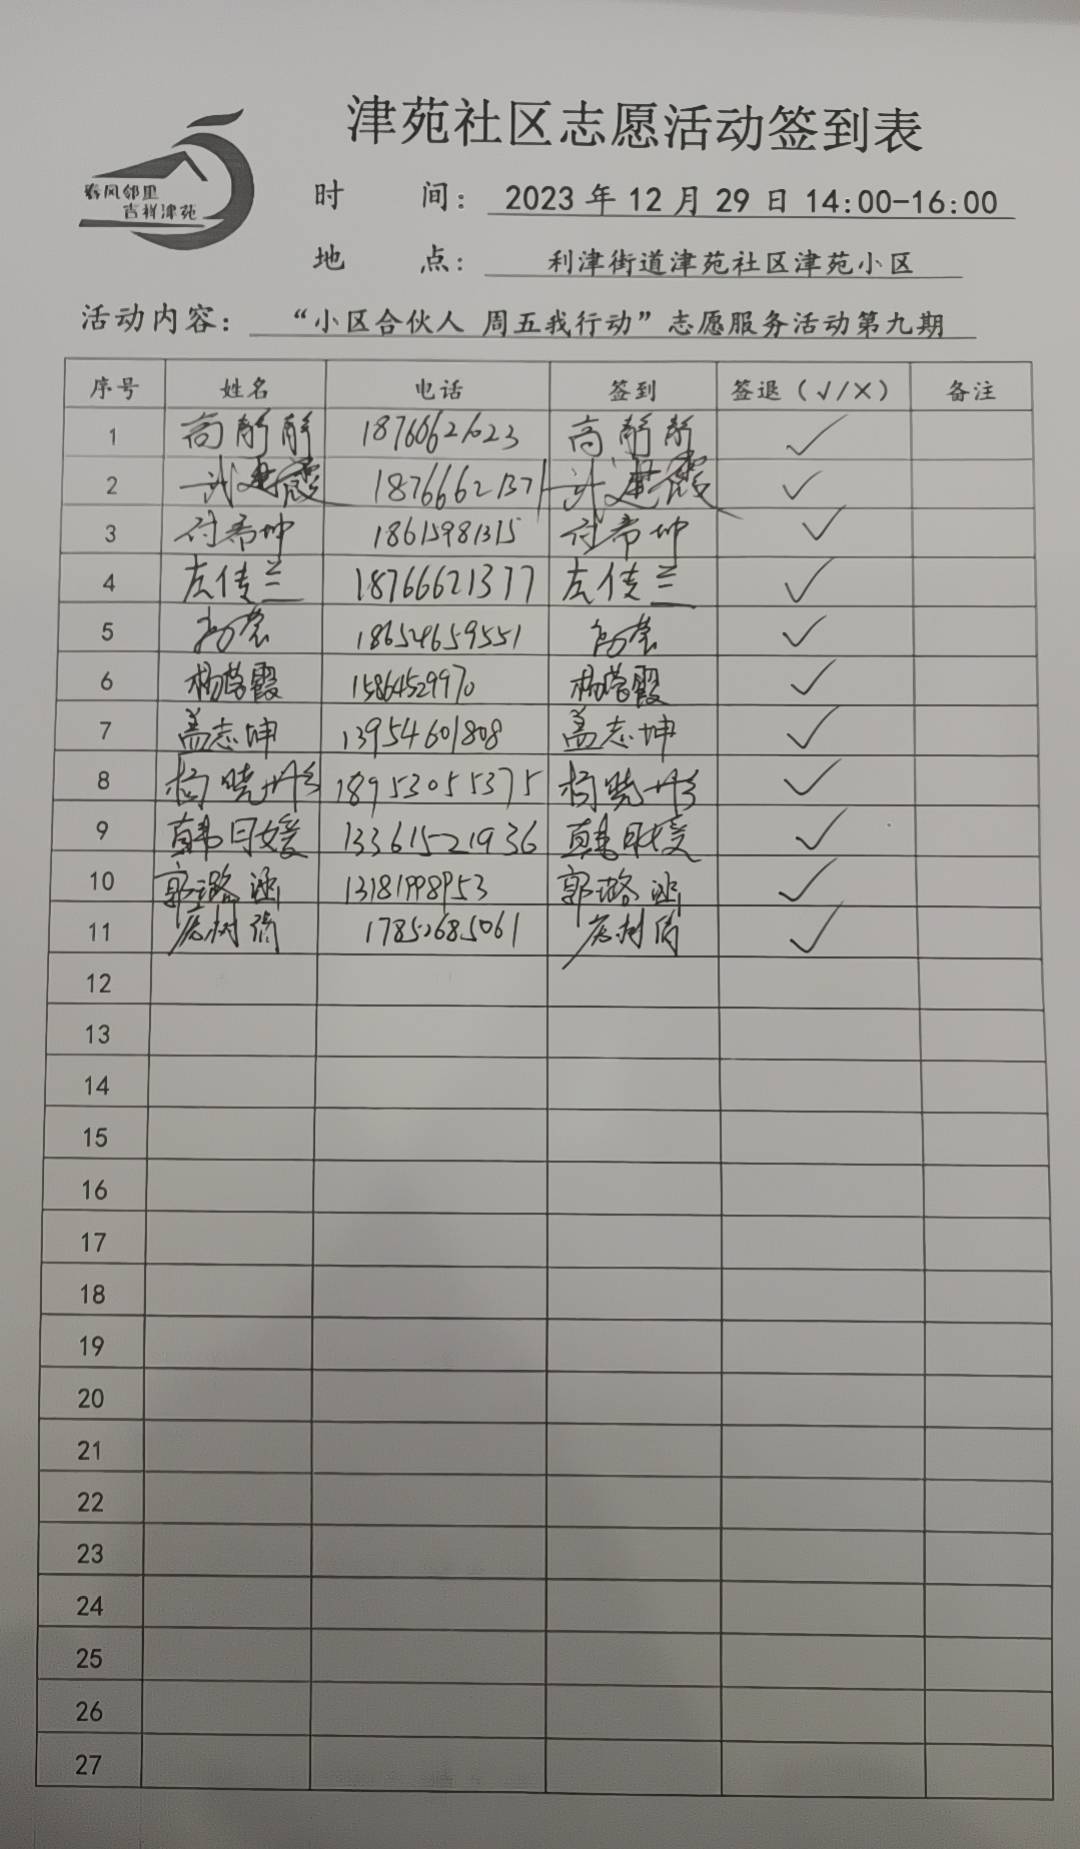 津苑社区志愿活动签到表
春风邻里
吉祥津苑
时 间: 2023 年 12 月 29 日 14:00-16:00
地 点: 利津街道津苑社区津苑小区
活动内容: “小区合伙人 周五我行动”志愿服务活动第九期
序号 姓名 电话 签到 签退(√/×) 备注
1 高静静 高静静 √
2 武建霞 18766621371 武建霞 √
3 付希坤 18615981315 付希坤 √
4 左传兰 18766621377 左传兰 √
5 18654659551 √
6 杨营霞 15864529970 杨营霞 √
7 盖志坤 13954601808 盖志坤 √
8 杨晓彤 18953055375 杨晓彤 √
9 韩月媛 13361521936 韩月媛 √
10 郭璐涵 13181998953 郭璐涵 √
11 17852685061 √
12
13
14
15
16
17
18
19
20
21
22
23
24
25
26
27